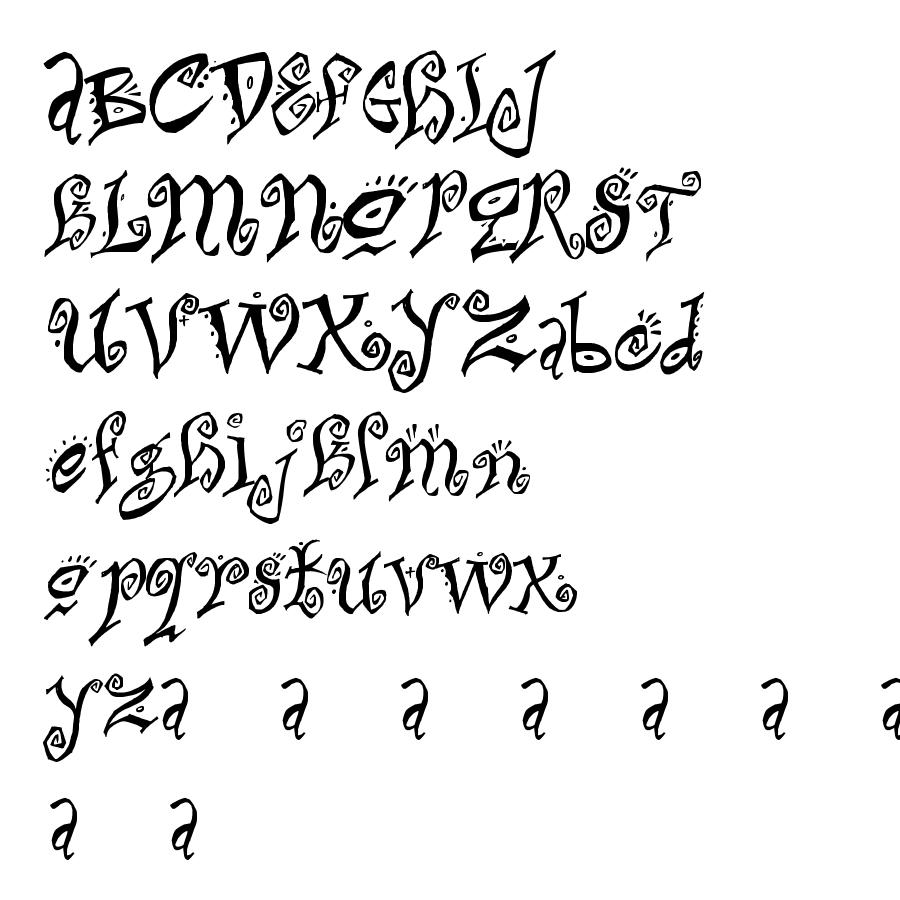 aBCDEFGHIJ
KLMNOPQRST
UVWXYZabcd
efghijklmn
opqrstuvwx
yza a a a a a a
a a